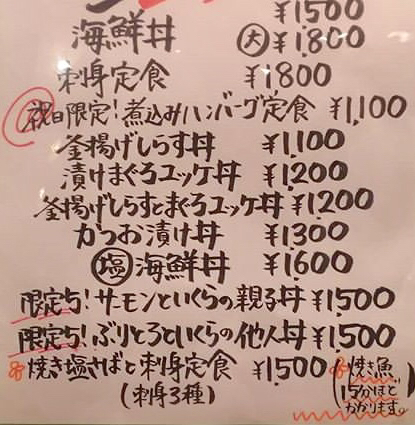 ¥1500
海鮮丼 大 ¥1,800
刺身定食 ¥1800
祝日限定!煮込みハンバーグ定食 ¥1,100
釜揚げしらす丼 ¥1,100
漬けまぐろユッケ丼 ¥1,200
釜揚げしらすとまぐろユッケ丼 ¥1200
かつお漬け丼 ¥1300
塩 海鮮丼 ¥1,600
限定5!サーモンといくらの親子丼 ¥1,500
限定5!ぶりとろといくらの他人丼 ¥1,500
焼き塩さばと刺身定食 ¥1,500
(刺身3種)
(焼き魚
15分ほど
かかります。)